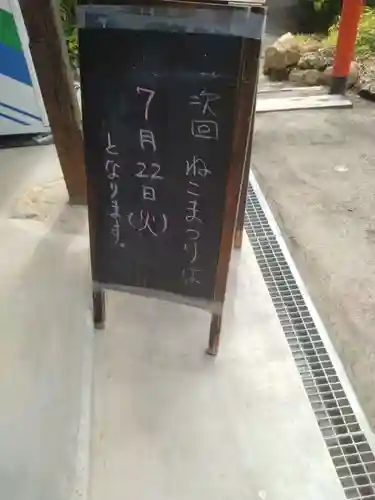 次回 ねこまつりは
7月22日(火)
となります。